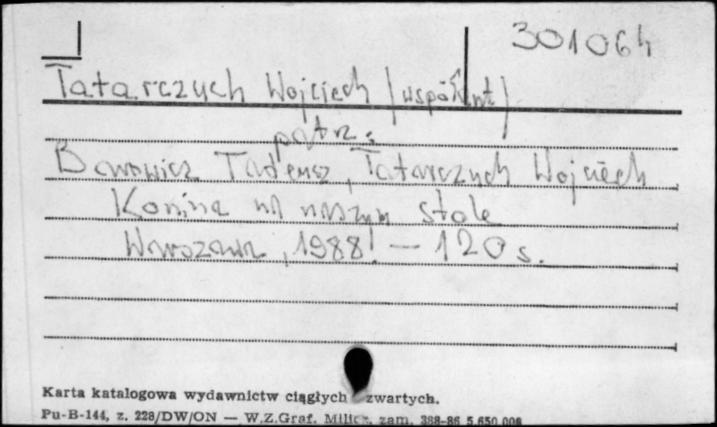 301064
Tatarczuch Wojciech (współaut)
patrz:
Borowicz Tadeusz, Tatarczuch Wojciech
Konina na naszym stole
Warszawa, 1988! - 120 s.
Karta katalogowa wydawnictw ciągłych zwartych.
Pu-B-144, z. 228/DW/ON — W.Z.Graf. Milicz, zam. 388-86 5 650 000